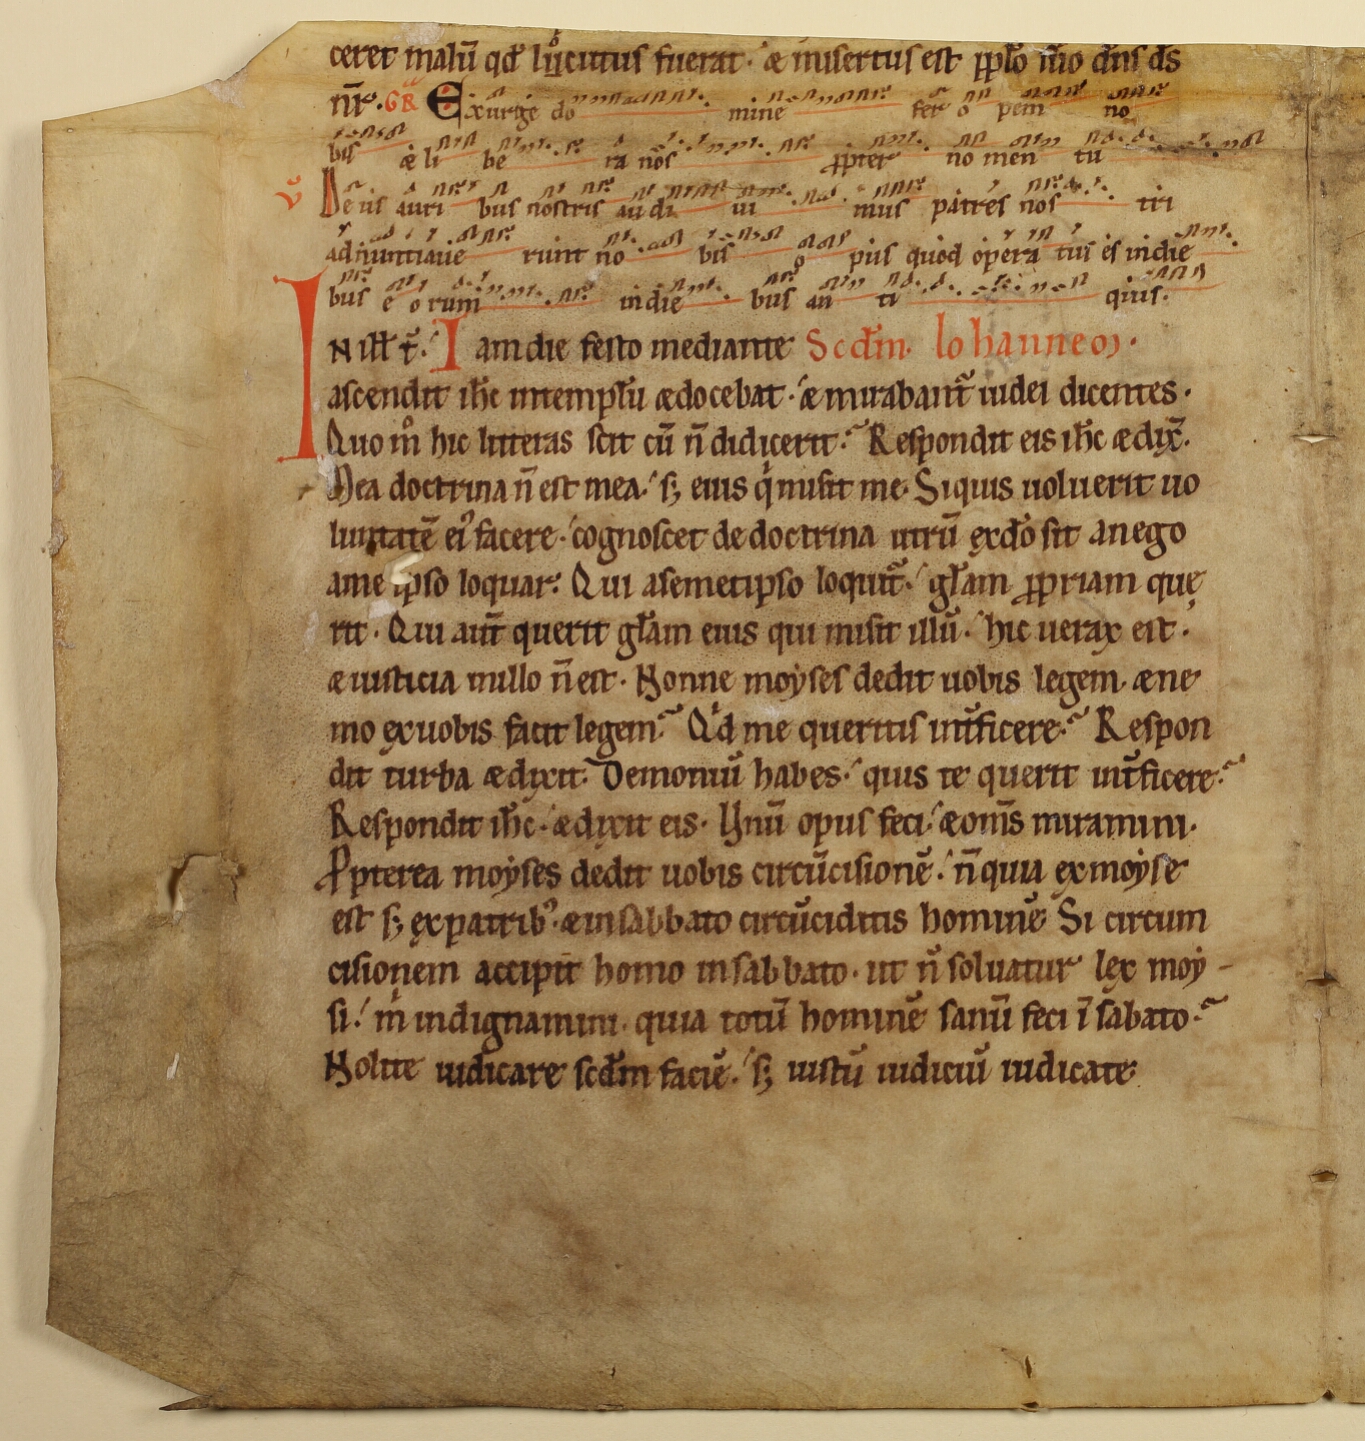 ceret malū qđ luͦcutus fuerat· ⁊ æ misertus est ꝑplo suo dn̄s ds
nr̄· GR Exurge do mine fer o pem no
bis æ li be ra nos ꝓpter no men tu
V̄ Deus auri bus nostris audi ui mus patres nos tri
adnuntiaue runt no bis o pus quod opera tus es indie
bus e orum indie bus an ti quis·
IN ill̄ t̄· Iam die festo mediante Scđm Iohanneꝫ·
ascendit ih̄c intemplū ædocebat· æmirabant̄ iudei dicentes·
Quo mͦ hic litteras scit cū n̄ didicerit· Respondit eis ih̄c ædix̄·
Mea doctrina n̄ est mea· sꝫ eius qͥ misit me· Siquis uoluerit uo
luntatē ei᾿ facere· cognoscet de doctrina utrū exdō sit anego
ame ipso loquar· Qui asemetipso loquit̄· gl̄am ꝓpriam quę
rit· Qui aut̄ querit gl̄am eius qui misit illū· hic uerax est·
æiusticia inillo n̄ est· Nonne moyses dedit uobis legem· æne
mo exuobis facit legem· Qͥd me queritis int̄ficere· Respon
dit turba ædixit· Demoniū habes· quis te querit int̄ficere·
Respondit ih̄c· ædixit eis· Unū opus feci· æom̄s miramini·
Ꝓpterea moyses dedit uobis circūcisionē· n̄quia exmoyse
est sꝫ expatrib᾿· æinsabbato circūciditis hominē Si circum
cisionem accipit homo insabbato· ut n̄ soluatur lex moy-
si· mͥ indignamini· quia totū hominē sanū feci ī sabato·
Nolite iudicare scđm faciē· sꝫ iustū iudiciū iudicate